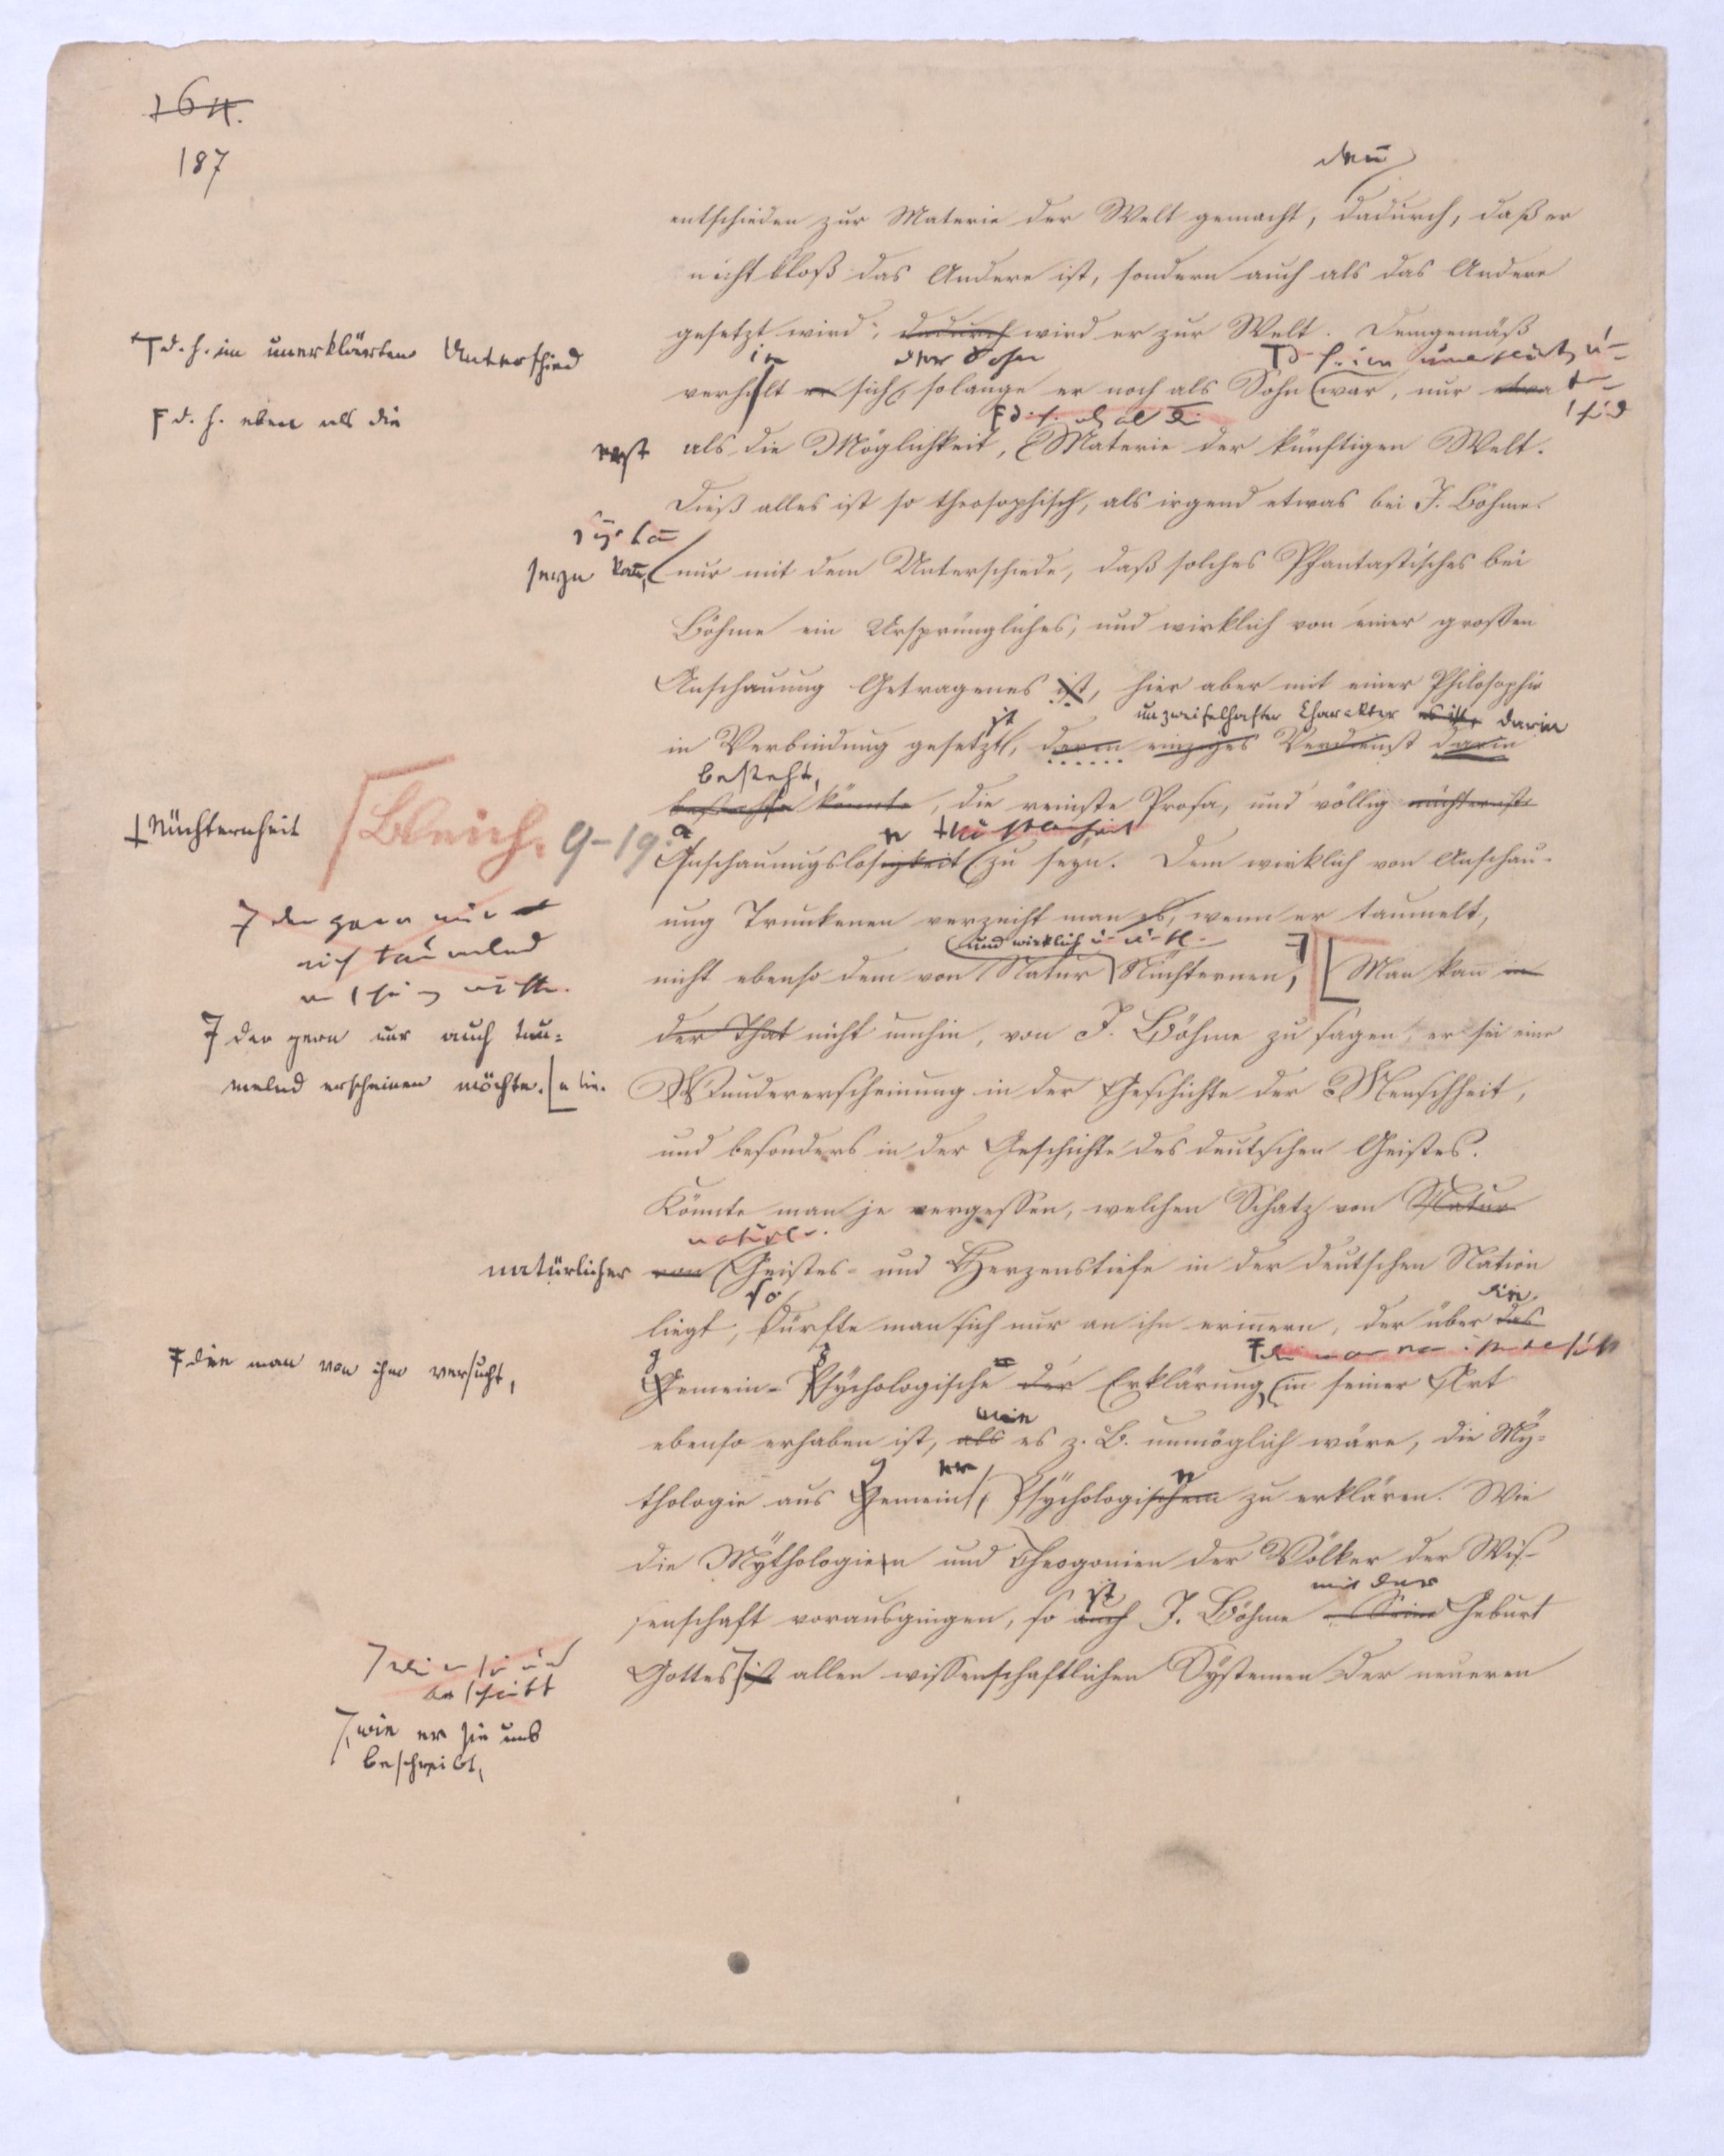 164.
187
denn
entschieden zur Materie der Welt gemacht, dadurch, daß er
nicht bloß das Andere ist, sondern auch als das Andere
gesetzt wird; dadurch wird er zur Welt. Demgemäß
d. h. im unerklärten Unterschied
der Sohn
verhält er sich, solange er noch als Sohn war, nur etwa
F d. h. eben als die
erst als die Möglichkeit, Materie der künftigen Welt.
Dieß alles ist so theosophisch, als irgend etwas bei J. Böhme
seyn kann, nur mit dem Unterschiede, daß solches Phantastisches bei
Böhme ein Ursprüngliches, und wirklich von einer großen
Anschauung Getragenes ist, hier aber mit einer Philosophie
ist unzweifelhafter Charakter es ist, darin
in Verbindung gesetzt, deren einziges Verdienst darin
besteht,
bestehen könnte, die reinste Prosa, und völlig nüchternste
Nüchternheit
Bleich. 9-19.
a n
Anschauungslosigkeit zu seyn. Dem wirklich von Anschau-
ung Trunkenen verzeiht man es, wenn er taumelt,
und wirklich
nicht ebenso dem von Natur Nüchternen, Man kann in
der That nicht umhin, von J. Böhme zu sagen, er sei eine
der gern nur auch tau-
melnd erscheinen möchte.
Wundererscheinung in der Geschichte der Menschheit,
und besonders in der Geschichte des deutschen Geistes.
Könnte man je vergessen, welchen Schatz von Natur
natürlicher von Geistes- und Herzenstiefe in der deutschen Nation
so die
liegt, dürfte man sich nur an ihn erinnern, der über das
F die man von ihm versucht,
g
Gemein-Psychologische der Erklärung in seiner Art
wie
ebenso erhaben ist, als es z. B. unmöglich wäre, die My-
g er
thologie aus Gemein Psychologischem zu erklären. Wie
die Mythologien und Theogonien der Völker der Wis-
ist mit der
senschaft vorausgingen, so auch J. Böhme Seine Geburt
Gottes ist allen wissenschaftlichen Systemen der neueren
wie er sie uns
beschreibt,